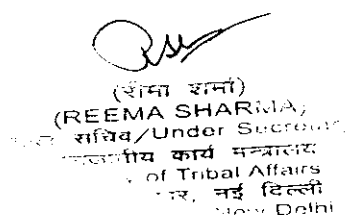 (रीमा शर्मा)
(REEMA SHARMA)
सचिव/Under
कार्य मन्त्रालय
of Tribal Affairs
नई दिल्ली
New Delhi